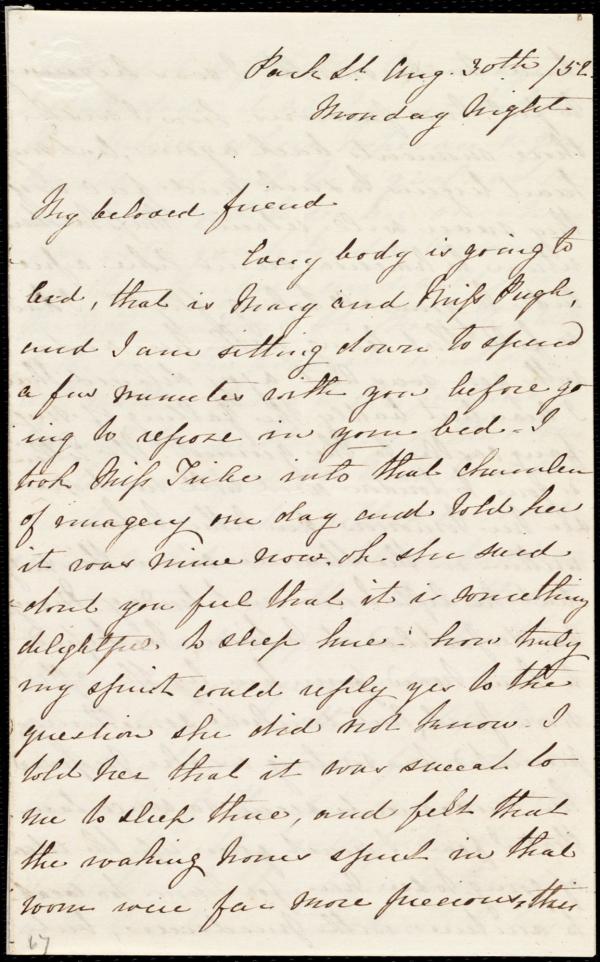 Park St. Aug. 30th /52.
Monday Night
My beloved friend
Every body is going to
bed, that is Mary and Miss Pugh,
and I am sitting down to spend
a few minutes with you before go
ing to repose in your bed - I
took Miss into that chamber
of imagery one day and told her
it was mine now. oh she said
dont you feel that it is something
delightful to sleep here: how truly
my spirit could reply yes to the
question she did not know. I
told her that it was sweet to
me to sleep there, and felt that
the waking hours spent in that
room were far more precious, this
67